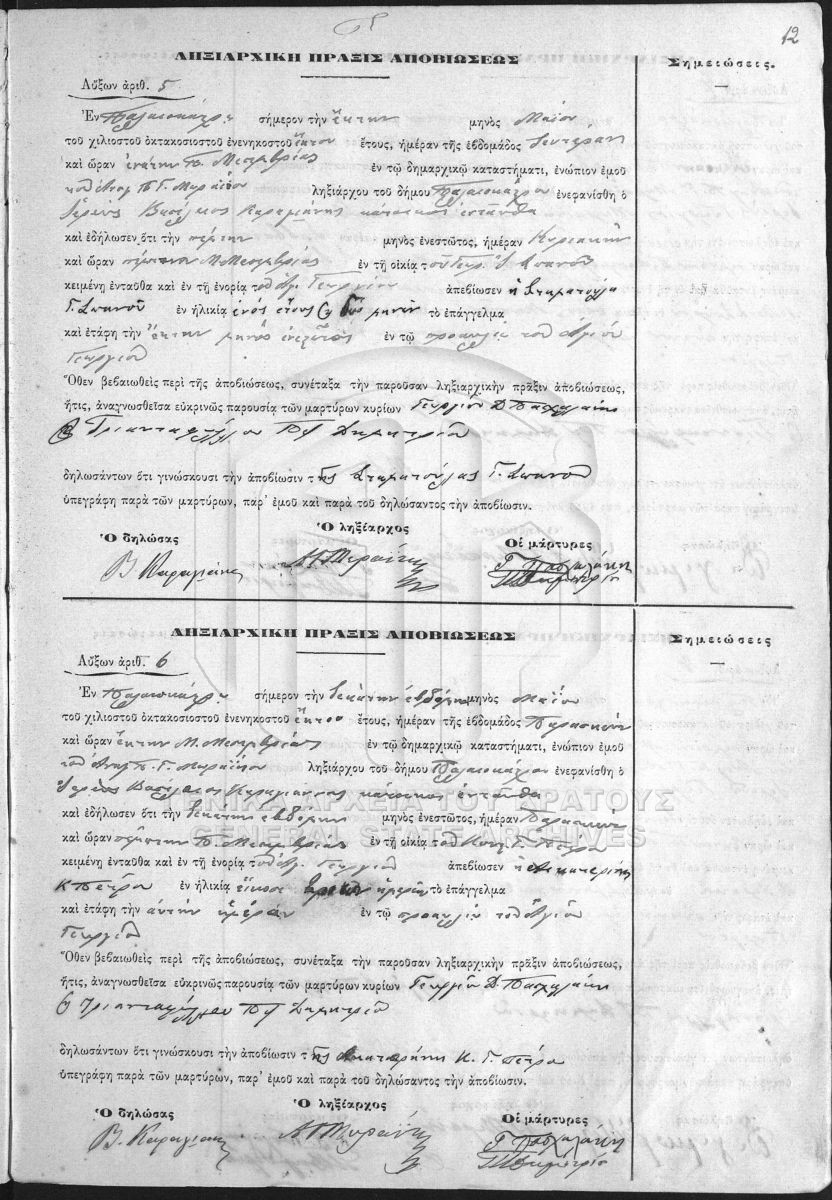 12
ΛΗΞΙΑΡΧΙΚΗ ΠΡΑΞΙΣ ΑΠΟΒΙΩΣΕΩΣ
Σημειώσεις.
Αὔξων ἀριθ. 5
Ἐν σήμερον τὴν ἕκτην μηνὸς Μαΐου
τοῦ χιλιοστοῦ ὀκτακοσιοστοῦ ἐνενηκοστοῦ ἕκτου ἔτους, ἡμέραν τῆς ἑβδομάδος Δευτέραν
καὶ ὥραν ἐνάτην Π. Μεσημβρίας ἐν τῷ δημαρχικῷ καταστήματι, ἐνώπιον ἐμοῦ
ληξιάρχου τοῦ δήμου ἐνεφανίσθη ὁ
Ἱερεὺς Βασίλειος Καραγιάνης κάτοικος ἐνταῦθα
καὶ ἐδήλωσεν ὅτι τὴν πέμπτην μηνὸς ἐνεστῶτος, ἡμέραν Κυριακὴν
καὶ ὥραν Μ. Μεσημβρίας ἐν τῇ οἰκίᾳ τοῦ Γεωρ. Σπανοῦ
κειμένῃ ἐνταῦθα καὶ ἐν τῇ ἐνορίᾳ τοῦ Ἁγ. Γεωργίου ἀπεβίωσεν ἡ Σταματούλα
Γ. Σπανοῦ ἐν ἡλικίᾳ ἑνὸς ἔτους δύο μηνῶν τὸ ἐπάγγελμα
καὶ ἐτάφη τὴν ἕκτην μηνὸς ἐνεστῶτος ἐν τῷ προαυλίῳ τοῦ Ἁγίου
Γεωργίου
Ὅθεν βεβαιωθεὶς περὶ τῆς ἀποβιώσεως, συνέταξα τὴν παροῦσαν ληξιαρχικὴν πρᾶξιν ἀποβιώσεως,
ἥτις, ἀναγνωσθεῖσα εὐκρινῶς παρουσίᾳ τῶν μαρτύρων κυρίων Γεωργίου Δ. Πασχαλάκη
Τριανταφύλλου Δημητρίου
δηλωσάντων ὅτι γινώσκουσι τὴν ἀποβίωσιν τῆς Σταματούλας Γ. Σπανοῦ
ὑπεγράφη παρὰ τῶν μαρτύρων, παρ' ἐμοῦ καὶ παρὰ τοῦ δηλώσαντος τὴν ἀποβίωσιν.
Ὁ δηλώσας Ὁ ληξίαρχος Οἱ μάρτυρες
Β Καραγιάνης Γ Πασχαλάκης
ΛΗΞΙΑΡΧΙΚΗ ΠΡΑΞΙΣ ΑΠΟΒΙΩΣΕΩΣ
Σημειώσεις
Αὔξων ἀριθ. 6
Ἐν σήμερον τὴν δεκάτην ἑβδόμην μηνὸς Μαΐου
τοῦ χιλιοστοῦ ὀκτακοσιοστοῦ ἐνενηκοστοῦ ἕκτου ἔτους, ἡμέραν τῆς ἑβδομάδος Παρασκευὴν
καὶ ὥραν ἕκτην Μ. Μεσημβρίας ἐν τῷ δημαρχικῷ καταστήματι, ἐνώπιον ἐμοῦ
ληξιάρχου τοῦ δήμου ἐνεφανίσθη ὁ
Ἱερεὺς Βασίλειος Καραγιάνης κάτοικος ἐνταῦθα
καὶ ἐδήλωσεν ὅτι τὴν δεκάτην ἑβδόμην μηνὸς ἐνεστῶτος, ἡμέραν Παρασκευὴν
καὶ ὥραν πέμπτην Π. Μεσημβρίας ἐν τῇ οἰκίᾳ τοῦ Κων. Γ. Πέτρου
κειμένῃ ἐνταῦθα καὶ ἐν τῇ ἐνορίᾳ τοῦ Ἁγ. Γεωργίου ἀπεβίωσεν ἡ Αἰκατερίνη
Κ Πέτρου ἐν ἡλικίᾳ εἴκοσι ἡμερῶν τὸ ἐπάγγελμα
καὶ ἐτάφη τὴν αὐτὴν ἡμέραν ἐν τῷ προαυλίῳ τοῦ Ἁγίου
Γεωργίου
Ὅθεν βεβαιωθεὶς περὶ τῆς ἀποβιώσεως, συνέταξα τὴν παροῦσαν ληξιαρχικὴν πρᾶξιν ἀποβιώσεως,
ἥτις, ἀναγνωσθεῖσα εὐκρινῶς παρουσίᾳ τῶν μαρτύρων κυρίων Γεωργίου Δ. Πασχαλάκη
Τριανταφύλλου Δημητρίου
δηλωσάντων ὅτι γινώσκουσι τὴν ἀποβίωσιν τῆς Αἰκατερίνης Κ. Γ. Πέτρου
ὑπεγράφη παρὰ τῶν μαρτύρων, παρ' ἐμοῦ καὶ παρὰ τοῦ δηλώσαντος τὴν ἀποβίωσιν.
Ὁ δηλώσας Ὁ ληξίαρχος Οἱ μάρτυρες
Β. Καραγιάνης Γ Πασχαλάκης
ΓΕΝΙΚΑ ΑΡΧΕΙΑ ΤΟΥ ΚΡΑΤΟΥΣ
GENERAL STATE ARCHIVES